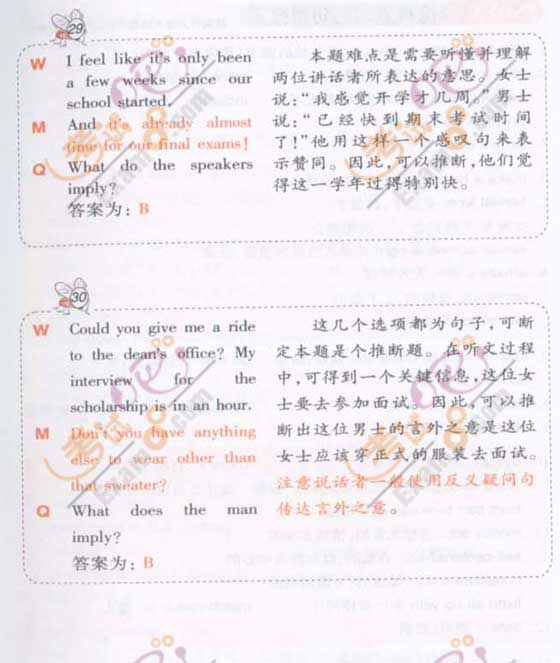 29
W I feel like it's only been
a few weeks since our
school started.
M And it's already almost
time for our final exams!
Q What do the speakers
imply?
答案为：B
本题难点是需要听懂并理解
两位讲话者所表达的意思。女士
说：“我感觉开学才几周。”男士
说：“已经快到期末考试时间
了！”他用这样一个感叹句来表
示赞同。因此，可以推断，他们觉
得这一学年过得特别快。
30
W Could you give me a ride
to the dean's office? My
interview for the
scholarship is in an hour.
M Don't you have anything
else to wear other than
that sweater?
Q What does the man
imply?
答案为：B
这几个选项都为句子，可断
定本题是个推断题。在听文过程
中，可得到一个关键信息，这位女
士要去参加面试。因此，可以推
断出这位男士的言外之意是这位
女士应该穿正式的服装去面试。
注意说话者一般使用反义疑问句
传达言外之意。